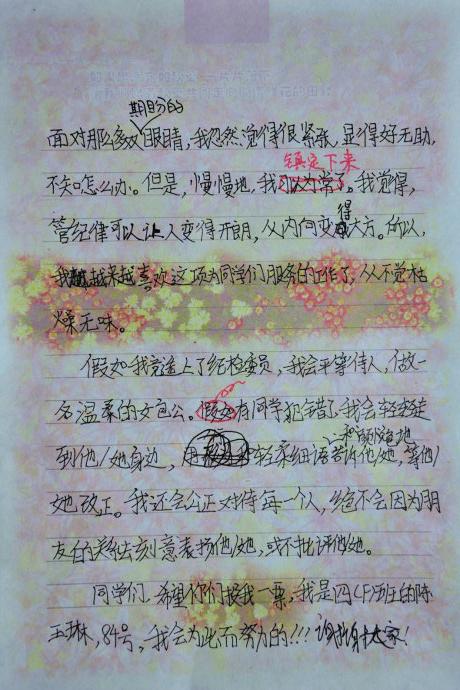 期盼的
面对那么多双眼睛,我忽然觉得很紧张,显得好无助,
镇定下来
不知怎么办。但是,慢慢地,我习以为常了。我觉得,
管纪律可以让人变得开朗,从内向变得大方。所以,
我越来越喜欢这项为同学们服务的工作了,从不觉枯
燥无味。
假如我竞选上了纪检委员,我会平等待人,做一
名温柔的女包公。假如有同学犯错了我会轻轻走
到他/她身边,用轻柔细语和颜悦色地告诉他/她,等他/
她改正。我还会公正对待每一个人,绝不会因为朋
友的关系去刻意表扬他/她,或不批评他/她。
同学们,希望你们投我一票,我是四(F)班的陈
玉琳,84号,我会为此而努力的!!!谢谢大家!